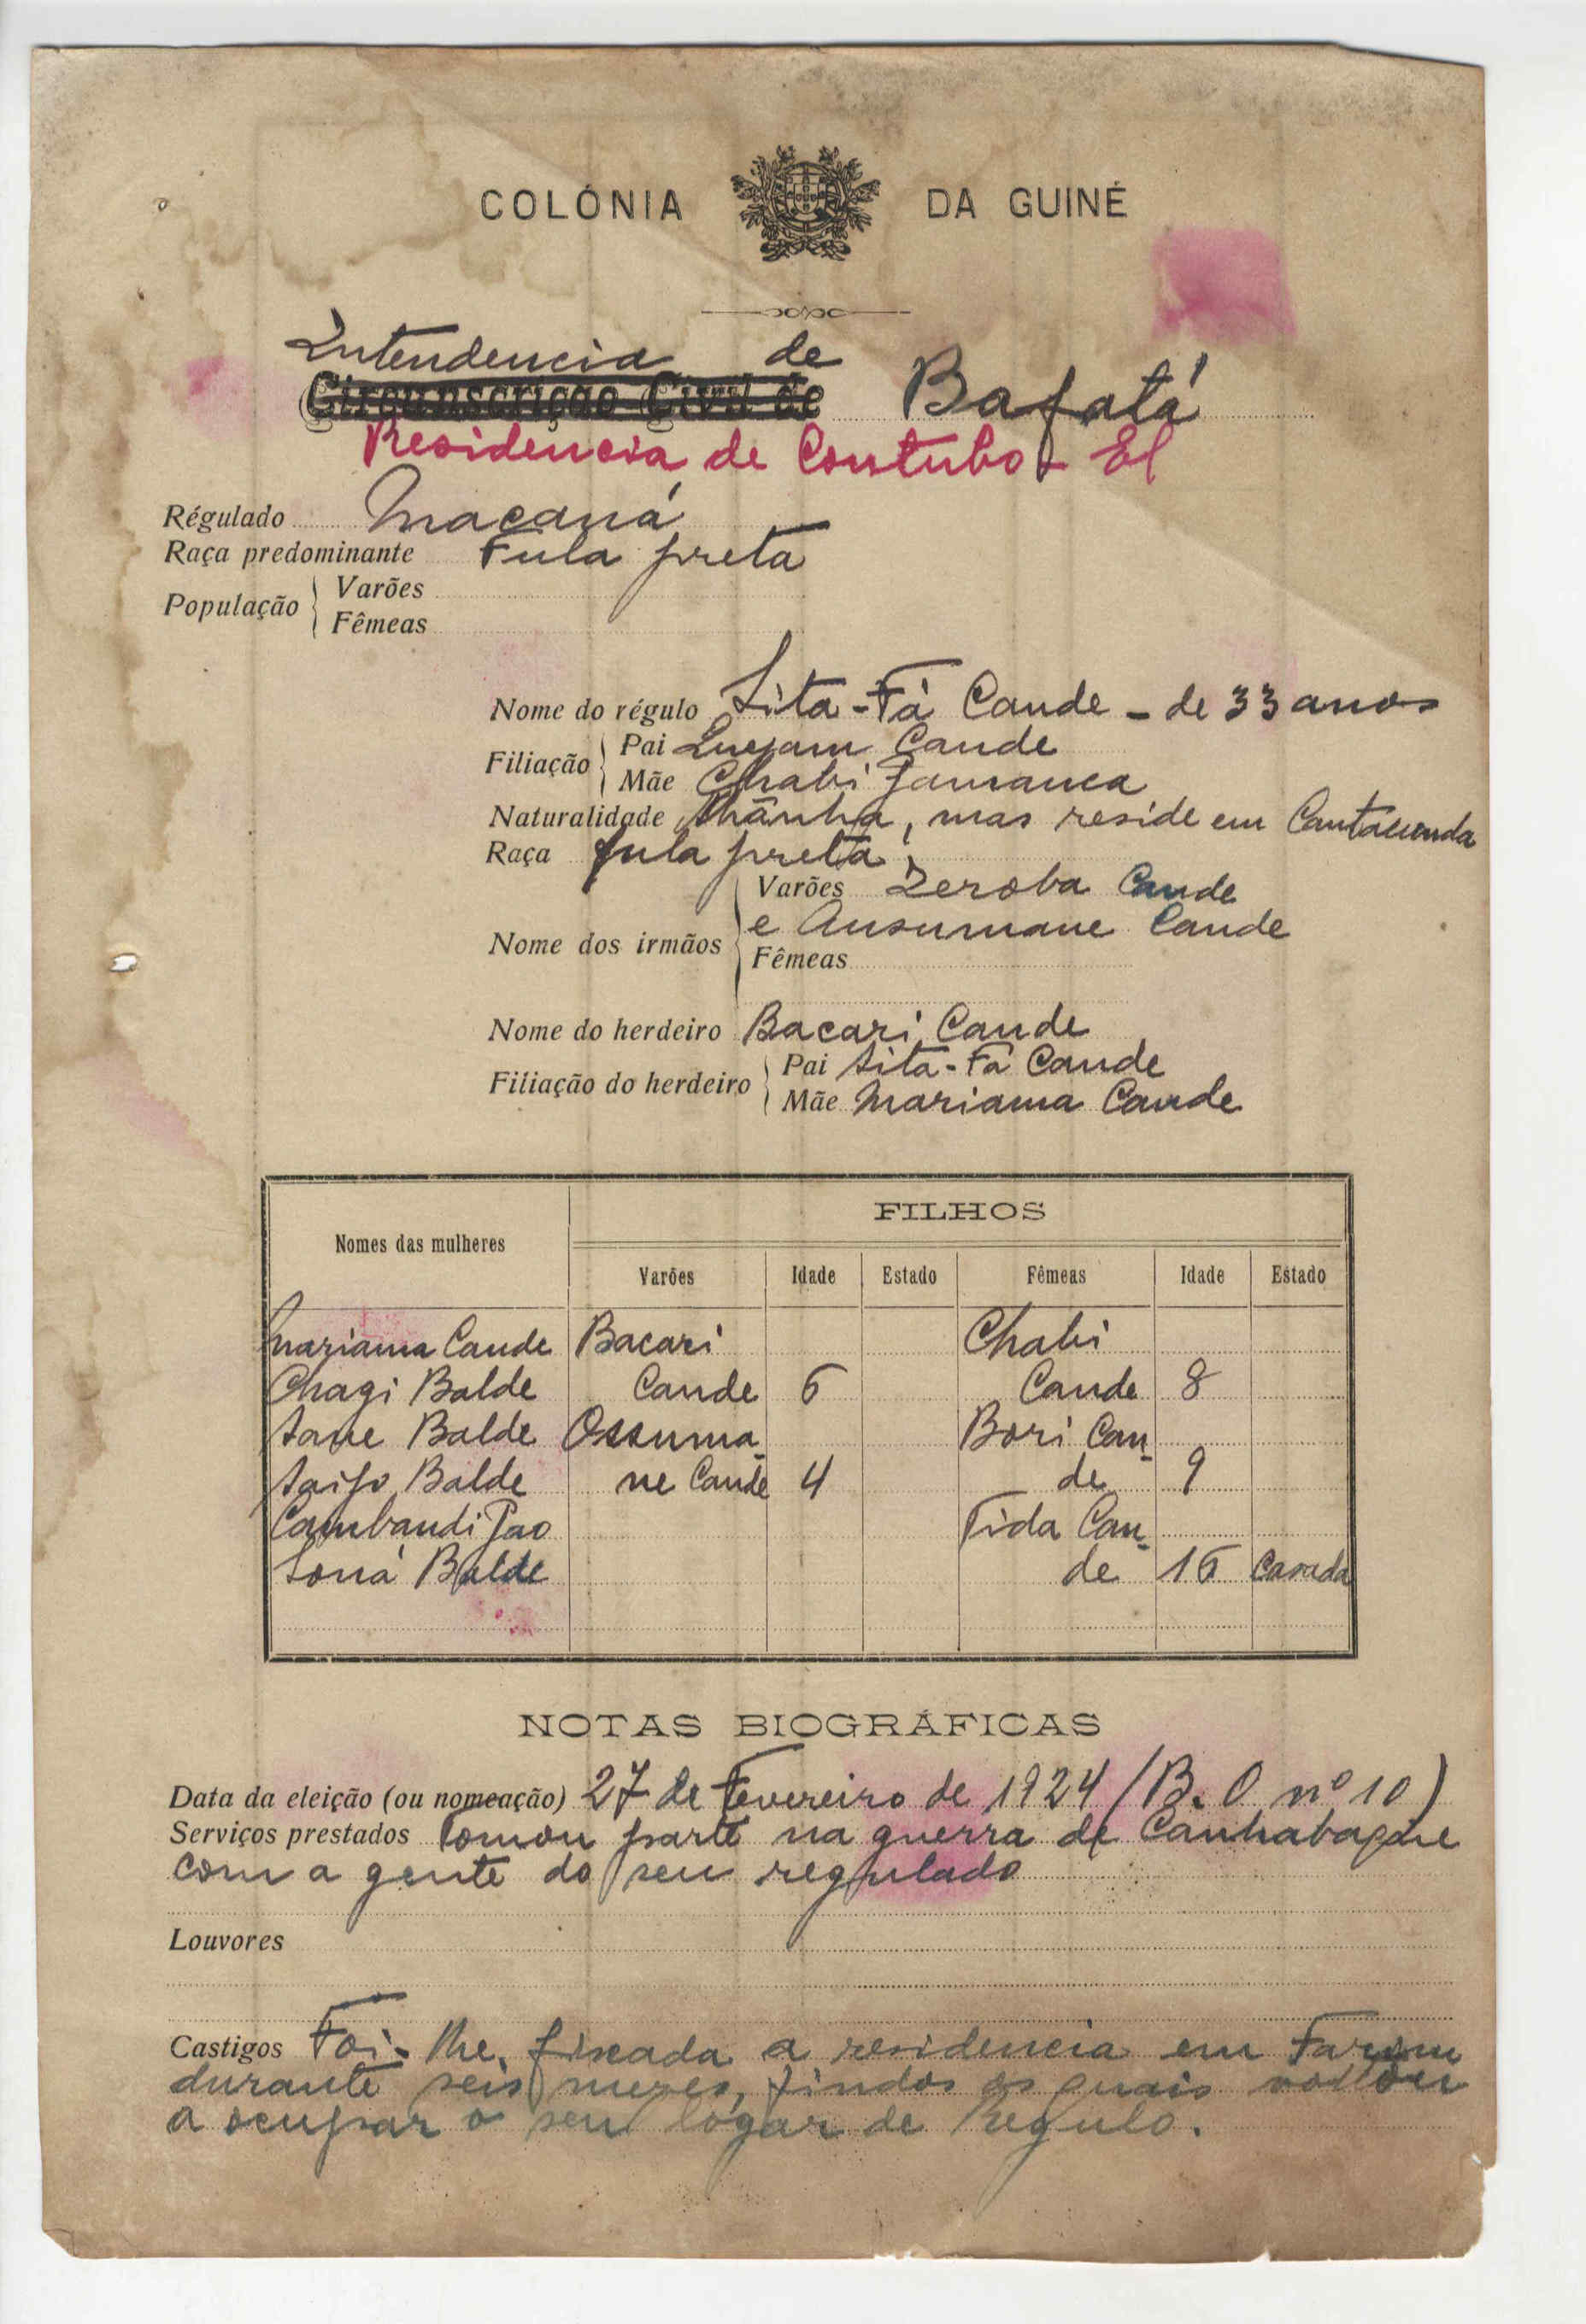 COLÓNIA DA GUINÉ
Intendencia de
Circunscrição Civil de Bafatá
Residencia de Contubo-El
Régulado Macaná
Raça predominante Fula preta
População Varões
Fêmeas
Nome do régulo Sita-Fá Cande - de 33 anos
Filiação Pai Cande
Mãe Chabi Jamanca
Naturalidade Mānha, mas reside em Cantacunda
Raça fula preta
Nome dos irmãos Varões Zeroba Cande
e Ansumane Cande
Fêmeas
Nome do herdeiro Bacari Cande
Filiação do herdeiro Pai Sita-Fá Cande
Mãe Mariama Cande
Nomes das mulheres FILHOS
Varões Idade Estado Fêmeas Idade Estado
Mariama Cande Bacari Chabi
Chagi Balde Cande 6 Cande 8
Sane Balde Ossuma- Bori Can-
Saifo Balde ne Cande 4 de 9
Cambandi Jao Fida Can-
Soná Balde de 16 Casada
NOTAS BIOGRÁFICAS
Data da eleição (ou nomeação) 27 de Fevereiro de 1924 (B. O nº 10)
Serviços prestados Tomou parte na guerra de Canhabaque
com a gente do seu regulado
Louvores
Castigos Foi-lhe fixada a residencia em Farim
durante seis mezes, findos os quais voltou
a ocupar o seu logar de Regulo.